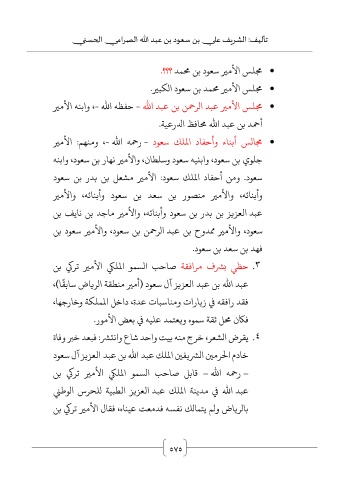 تأليف: الشريف علي بن سعود بن عبد الله الصرامي الحسني
• مجلس الأمير سعود بن محمد ؟؟؟.
• مجلس الأمير محمد بن سعود الكبير.
• مجلس الأمير عبد الرحمن بن عبد الله - حفظه الله -، وابنه الأمير
أحمد بن عبد الله محافظ الدرعية.
• مجالس أبناء وأحفاد الملك سعود - رحمه الله -، ومنهم: الأمير
جلوي بن سعود، وابنيه سعود وسلطان، والأمير نهار بن سعود، وابنه
سعود. ومن أحفاد الملك سعود: الأمير مشعل بن بدر بن سعود
وأبنائه، والأمير منصور بن سعد بن سعود وأبنائه، والأمير
عبد العزيز بن بدر بن سعود وأبنائه، والأمير ماجد بن نايف بن
سعود، والأمير ممدوح بن عبد الرحمن بن سعود، والأمير سعود بن
فهد بن سعد بن سعود.
٣. حظي بشرف مرافقة صاحب السمو الملكي الأمير تركي بن
عبد الله بن عبد العزيز آل سعود (أمير منطقة الرياض سابقًا)،
فقد رافقه في زيارات ومناسبات عدة، داخل المملكة وخارجها،
فكان محل ثقة سموه ويعتمد عليه في بعض الأمور.
٤. يقرض الشعر، خرج منه بيت واحد شاع وانتشر: فبعد خبر وفاة
خادم الحرمين الشريفين الملك عبد الله بن عبد العزيز آل سعود
- رحمه الله - قابل صاحب السمو الملكي الأمير تركي بن
عبد الله في مدينة الملك عبد العزيز الطبية للحرس الوطني
بالرياض ولم يتمالك نفسه فدمعت عيناه، فقال الأمير تركي بن
٥٧٥